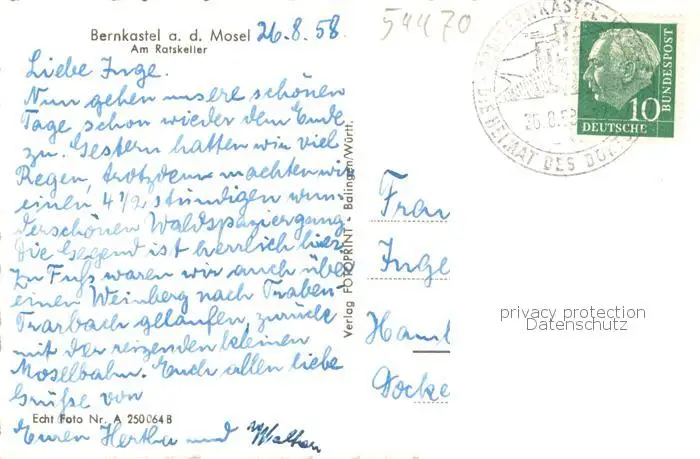 Bernkastel a. d. Mosel 26.8.58.
Am Ratskeller
54470
Liebe Inge.
Nun gehen unsere schönen
Tage schon wieder dem Ende
zu. Gestern hatten wir viel
Regen, trotzdem machten wir
einen 4 1/2 stündigen wun-
derschönen Waldspaziergang.
Die Gegend ist herrlich hier.
Zu Fuß waren wir auch über
einen Weinberg nach Traben-
Trarbach gelaufen, zurück
mit der reizenden kleinen
Moselbahn. Euch allen liebe
Grüße von
Echt Foto Nr. A 250064B
Euren Hertha und
Verlag FOTOPRINT - Balingen/Württ.
BERNKASTEL-
26.8.58
DIE HEIMAT DES
10
DEUTSCHE
BUNDESPOST
Frau
Inge
privacy protection
Datenschutz